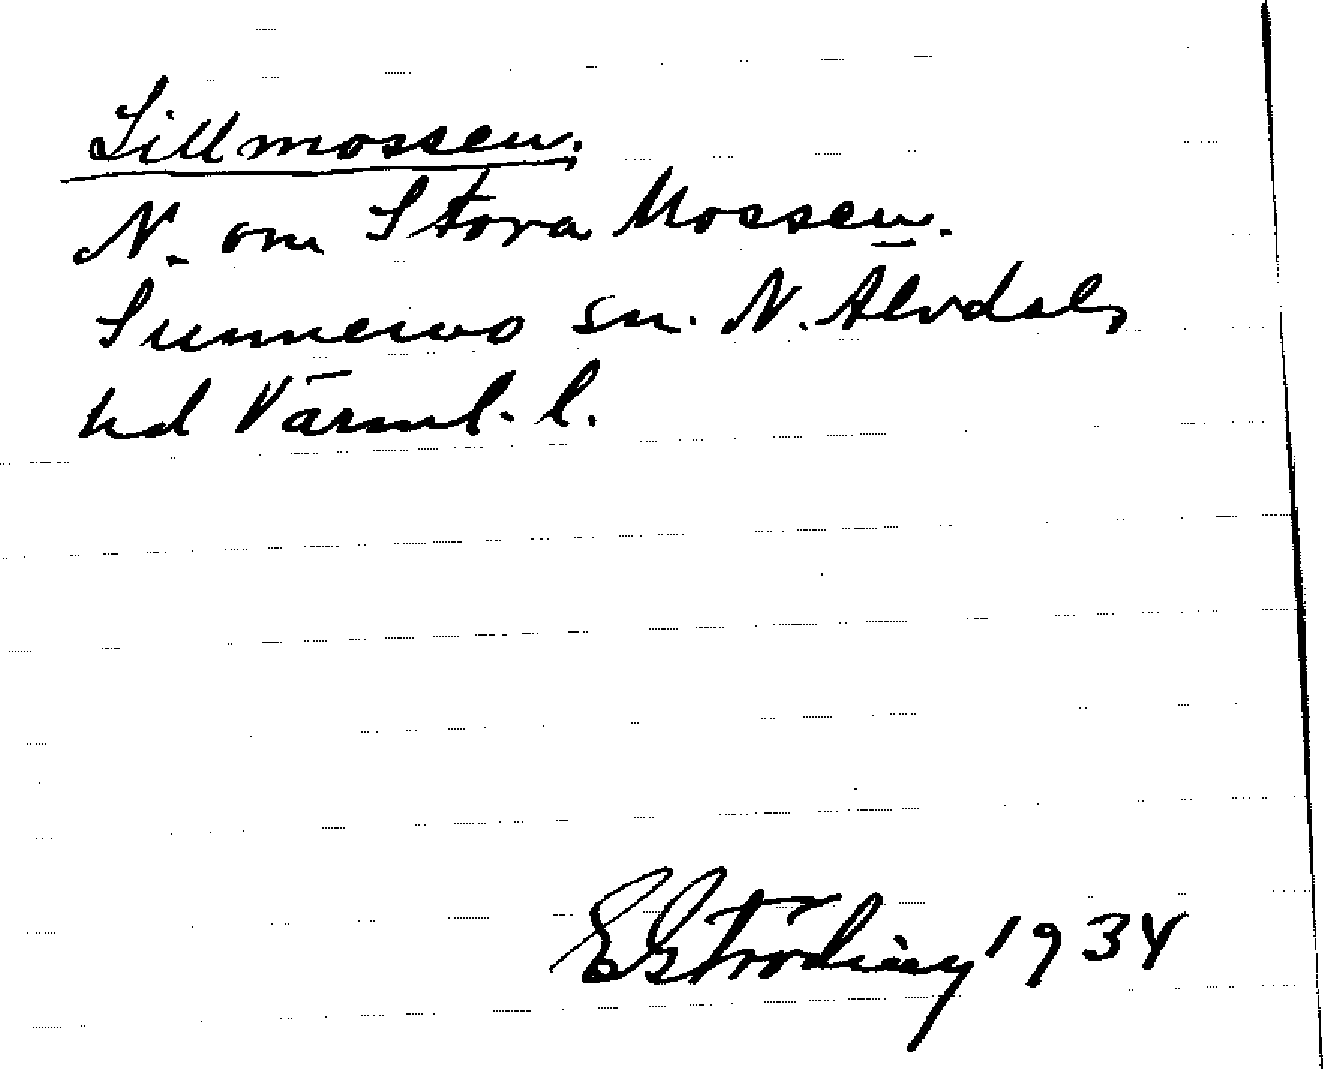 Lillmossen.
N. om Stora Mossen.
Sunnemo sn. N. Älvdals
hd Värml. l.
E Fröding 1934